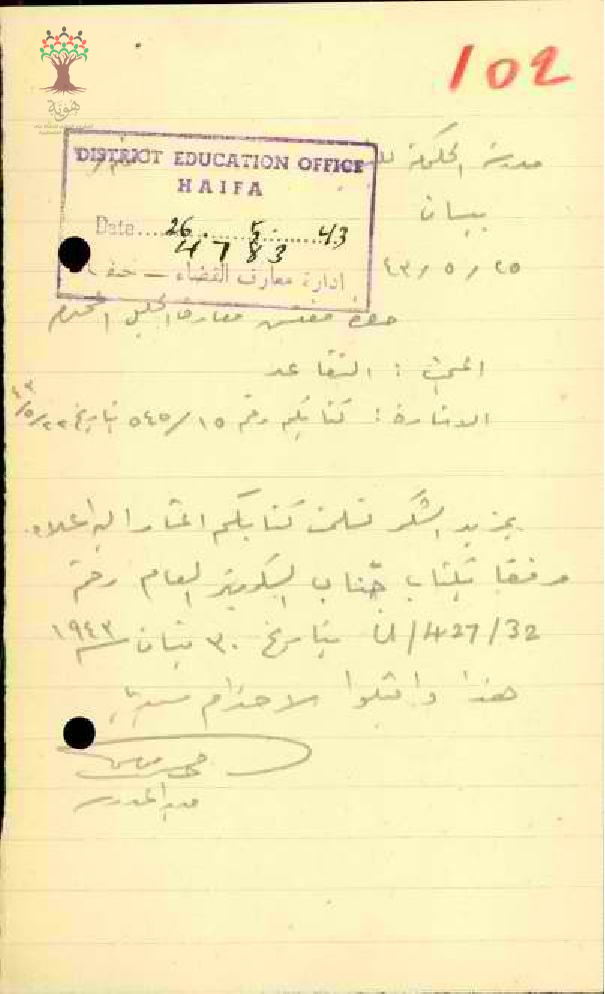 102
مدرسة الحكومة
DISTRICT EDUCATION OFFICE
HAIFA
بيسان
Date....26.....5......43
4783
ادارة معارف القضاء – حيفا
٢٥ / ٥ / ٤٣
حضرة مفتش معارف الجليل المحترم
البحث : التقاعد
الاشارة : كتابكم رقم ١٥/٥٤٥ بتاريخ ٢٢/٥/٤٣
بمزيد الشكر تسلمت كتابكم المشار اليه اعلاه
مرفقا بكتاب جناب السكرتير العام رقم
427/32/ بتاريخ ٣٠ نيسان سنة ١٩٤٣
هذا واقبلوا الاحترام سيدي
مدير المدرسة
هوية